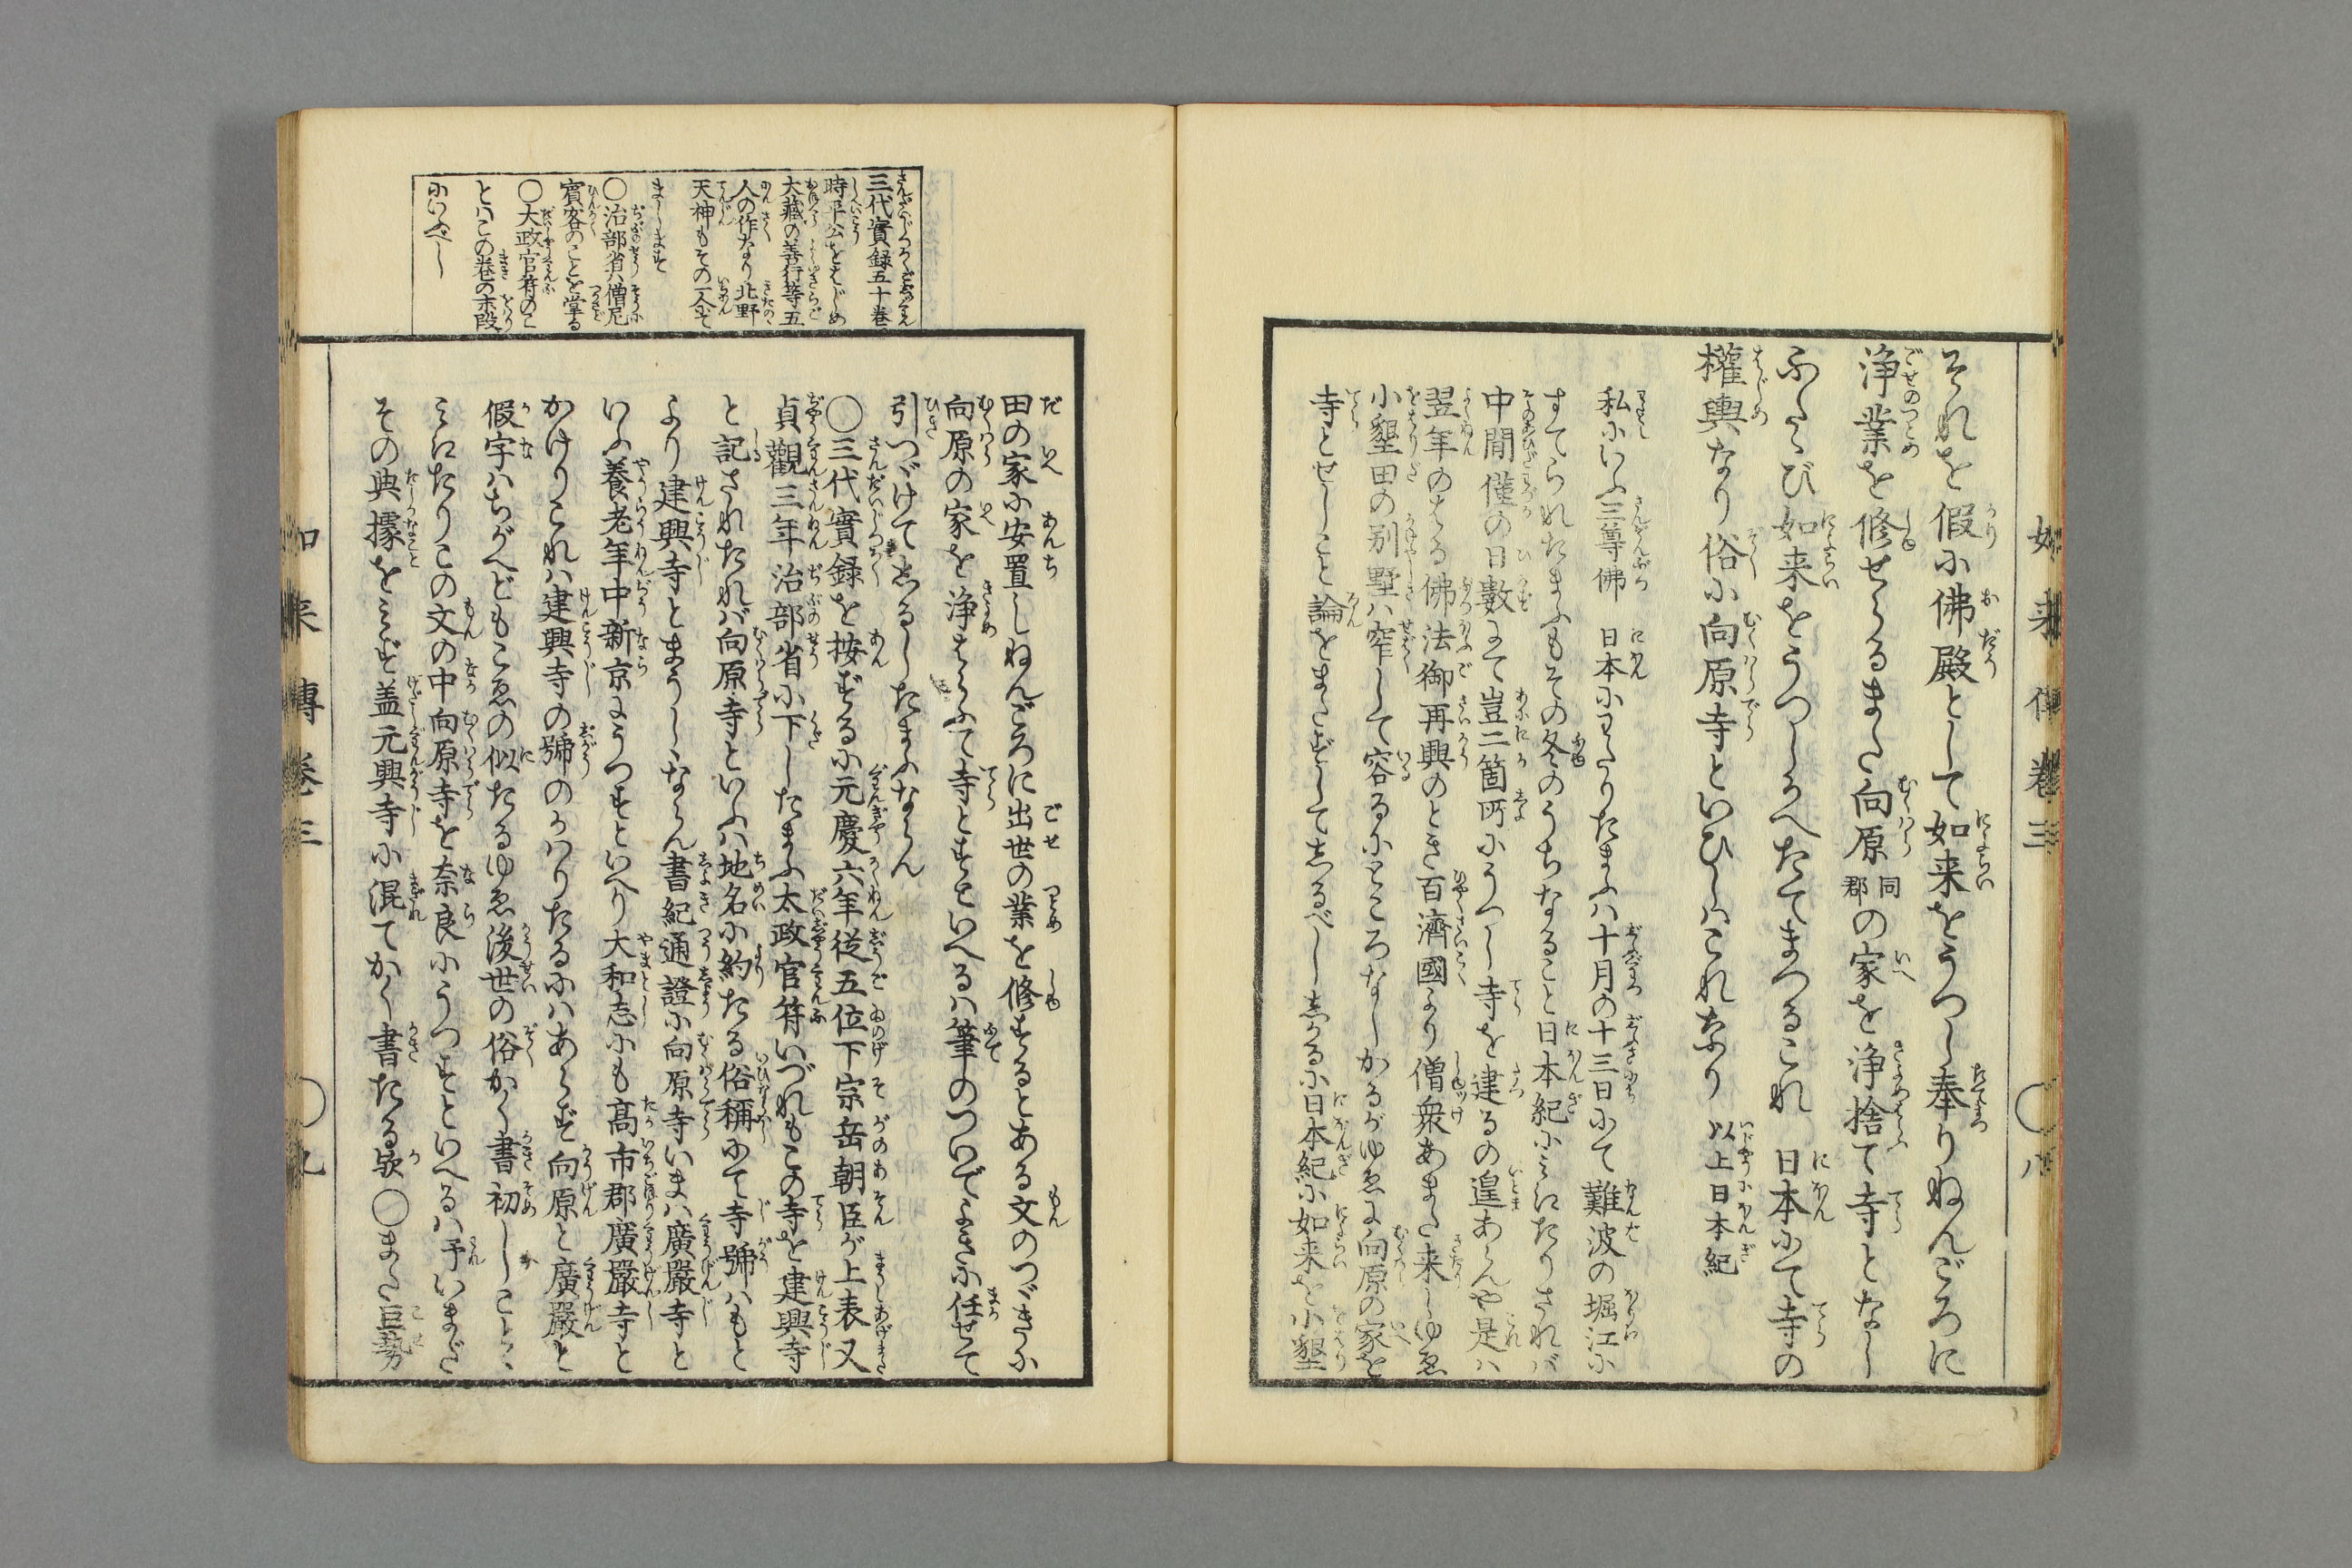 如来傳巻三 ○八
それを假に佛殿として如来をうつし奉りねんごろに
浄業を修せらるまた向原同郡の家を浄捨て寺となし
ふたゝび如来をうつしかへたてまつるこれ 日本にて寺の
權輿なり俗に向原寺といひしハこれなり 以上日本紀
私にいふ三尊佛 日本にわたりたまふハ十月の十三日にて難波の堀江に
すてられたまふもその冬のうちなること日本紀にミえたりされバ
中間僅の日數にて豈二箇所にうつし寺を建るの遑あらんや是ハ
翌年のはる佛法御再興のとき百濟國より僧衆あまた来しゆゑ
小墾田の别墅ハ窄して容るにところなしかるがゆゑに向原の家を
寺とせしこと論をまたずしてしるべししかるに日本紀に如来を小墾
田の家に安置しねんごろに出世の業を修するとある文のつゞきに
向原の家を浄はらふて寺とすといへるハ筆のついでよきに任せて
引つゞけてしるしたまふならん
○三代實録を按ずるに元慶六年従五位下宗岳朝臣が上表又
貞觀三年治部省に下したまふ太政官符いづれもこの寺を建興寺
と記されたれバ向原寺といふハ地名に約たる俗稱にて寺號ハもと
より建興寺とまうしゝならん書紀通證に向原寺いまハ廣嚴寺と
いふ養老年中新京にうつすといへり大和志にも髙市郡廣嚴寺と
かけりこれハ建興寺の號のかハりたるにハあらず向原と廣嚴と
假字ハちがへどもこゑの似たるゆゑ後世の俗かく書初しことゝ
ミえたりこの文の中向原寺を奈良にうつすといへるハ予いまだ
その典據をミず盖元興寺に混てかく書たる歟○また巨勢
三代實録五十巻
時平公をはじめ
大藏の善行等五
人の作なり北野
天神もその一人にて
まします
○治部省ハ僧尼
賓客のことを掌る
○大政官符のこ
とハこの巻の末段
にいふべし
如来傳巻三 ○九